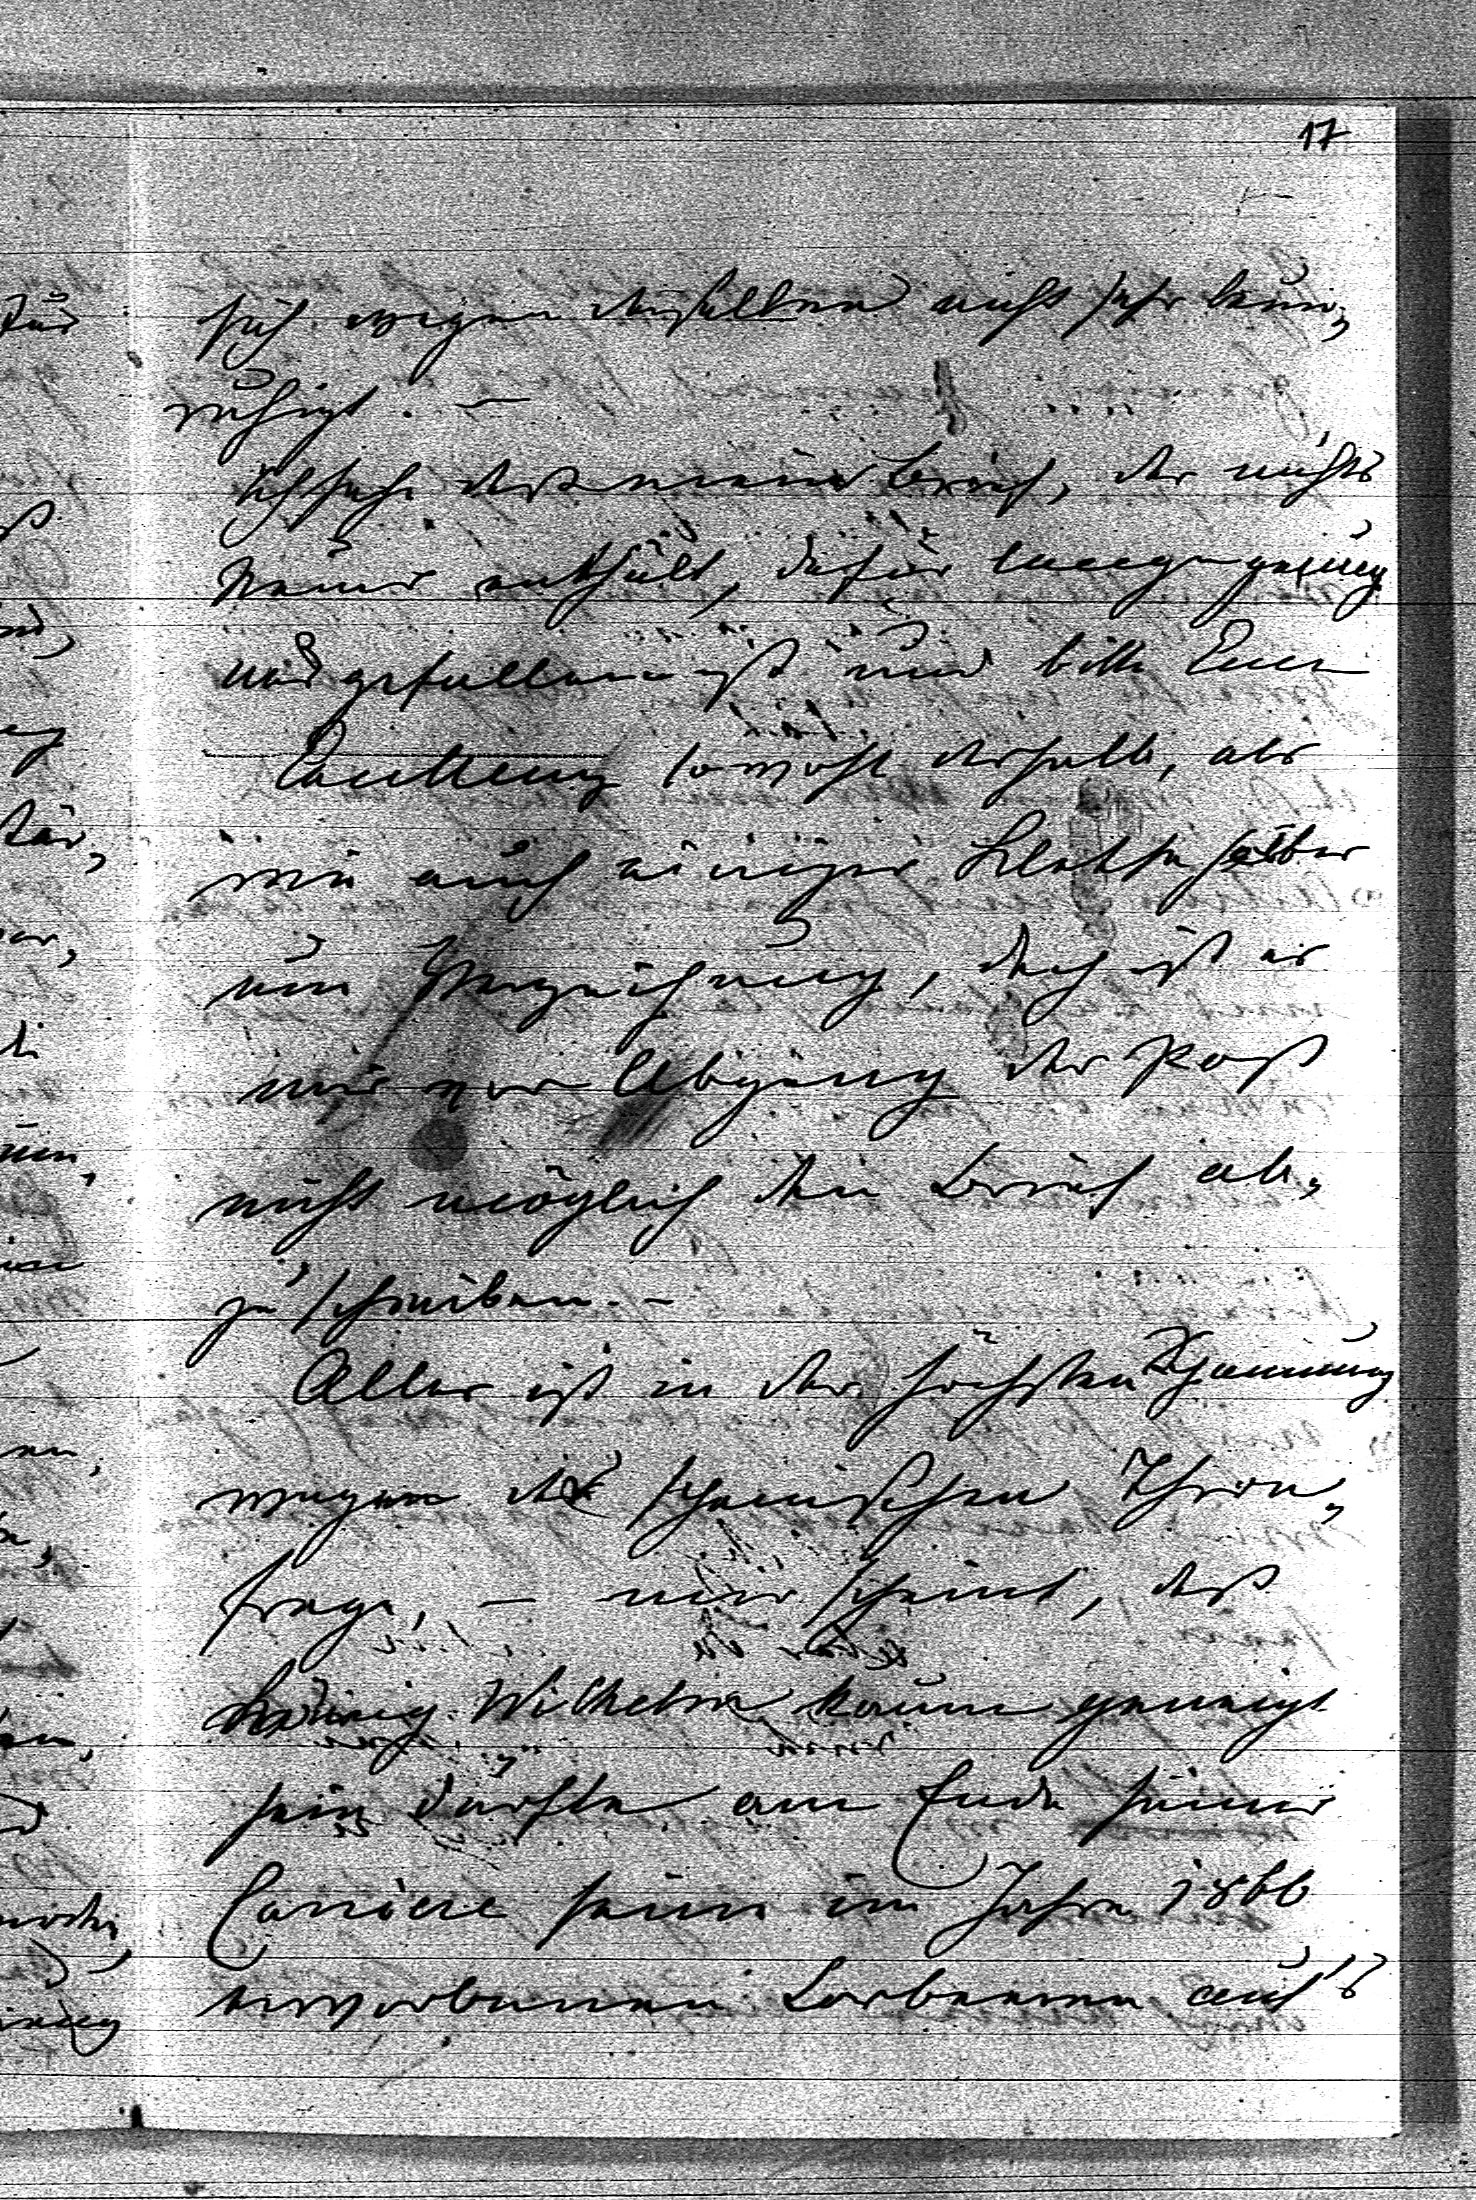 17
sich wegen desselben nicht sehr beun,
ruhigt. –
Ich sehe daß mein Brief, der nichts
Neues enthält, dafür lang genug
ausgefallen ist und bitte Euer
sowohl deshalb, als
wie auch einiger Kleckse selber
um Verzeichung, doch ist es
mir vor Abgang der Post
nicht möglich den Brief ab,
zu schreiben. –
Alles ist in der höchsten Spannung
wegen der spanischen Thron,
frage, – mir scheint, daß
König Wilhelm kaum geneigt
sein dürfte am Ende seiner
Carriere seine im Jahre 1866
erworbenen Lorbeeren auf's